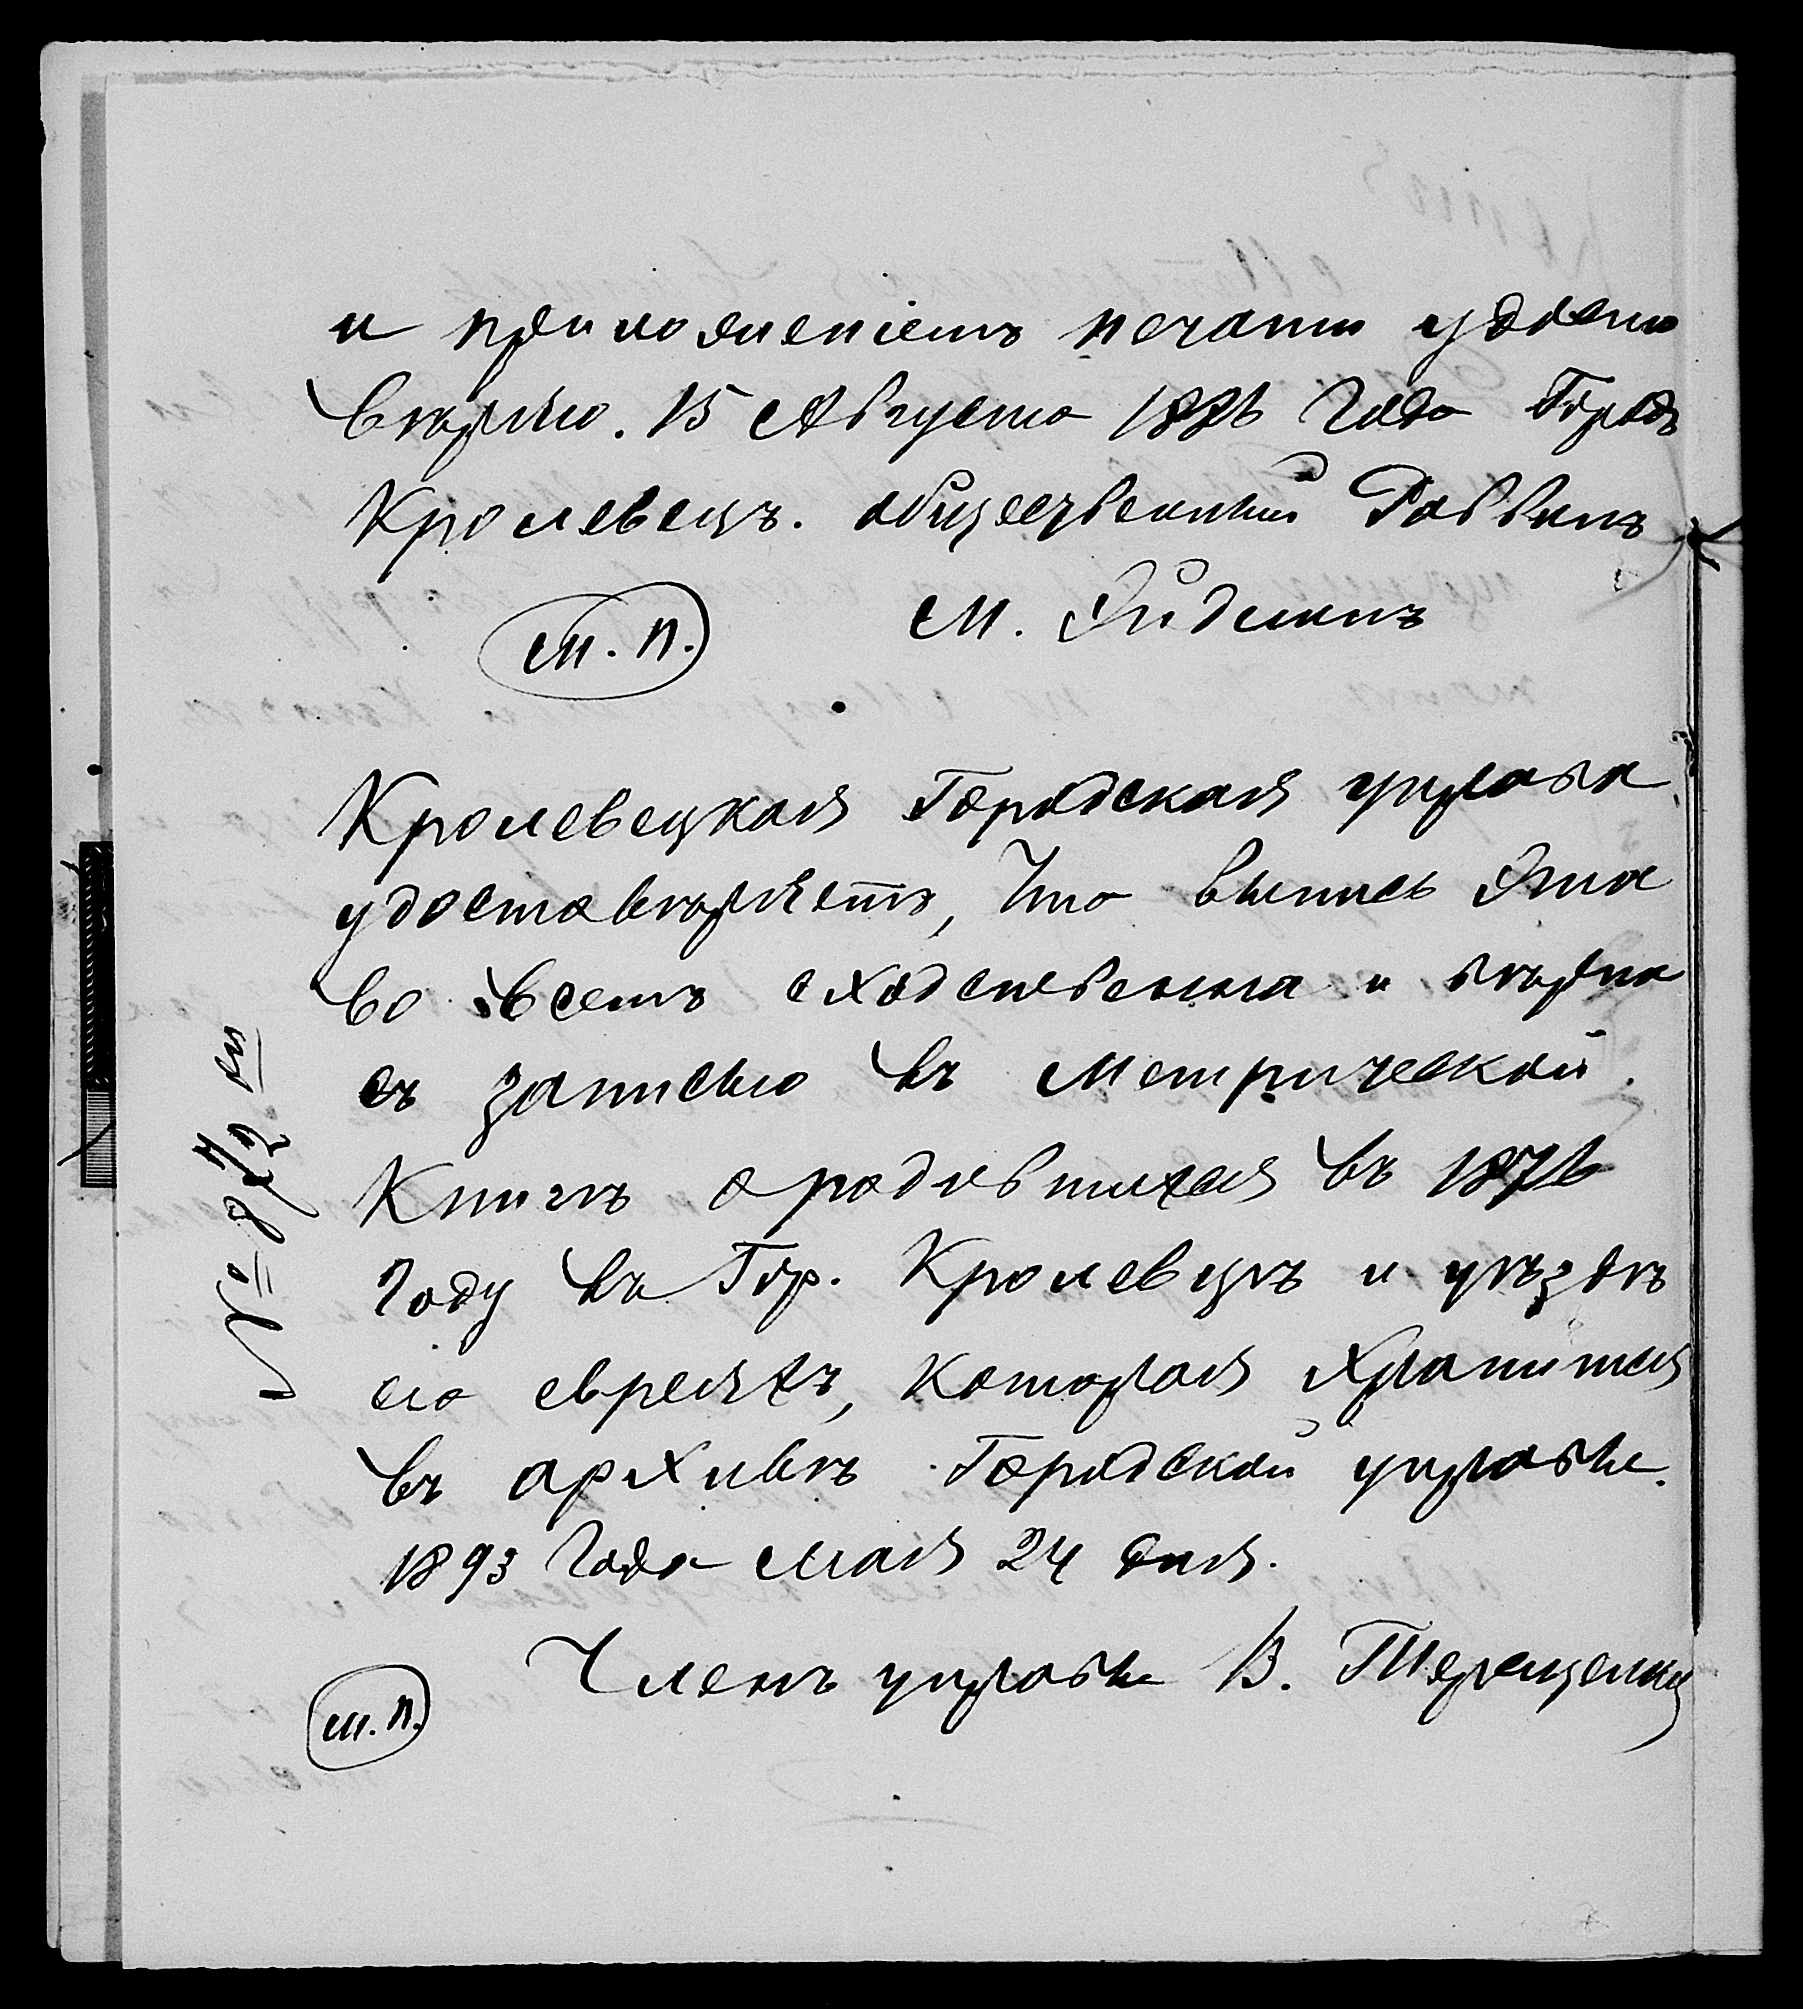 и приложеніемъ печати удосто
вѣряю. 15 Августа 1886 года Городъ
Кролевецъ. общественный Раввинъ
М. Айдманъ
М. П.
Кролевецкая Городская управа
удостовѣряетъ, что выпись эта
во всемъ сходственна и вѣрна
съ записью въ Метрической
Книгѣ о родившихся въ 1876
году въ Гор. Кролевцѣ и уѣздѣ
его евреяхъ, которая хранится
въ архивѣ Городской управы.
1893 года мая 24 дня.
Членъ управы В. Терещенко
М. П.
№ 872